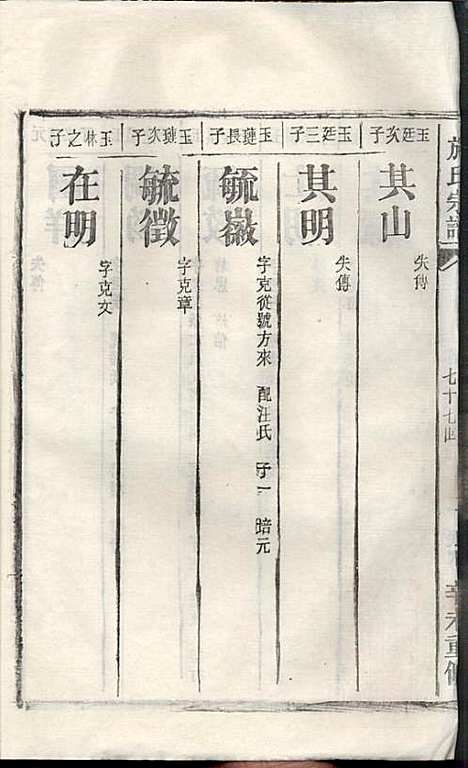 施氏宗譜
七十七世
辛未重修
玉廷次子
其山
失傳
玉廷三子
其明
失傳
玉璉長子
毓嶶
字克從號方來 配汪氏 子一 暗元
玉璉次子
毓徵
字克章
玉林之子
在明
字克文